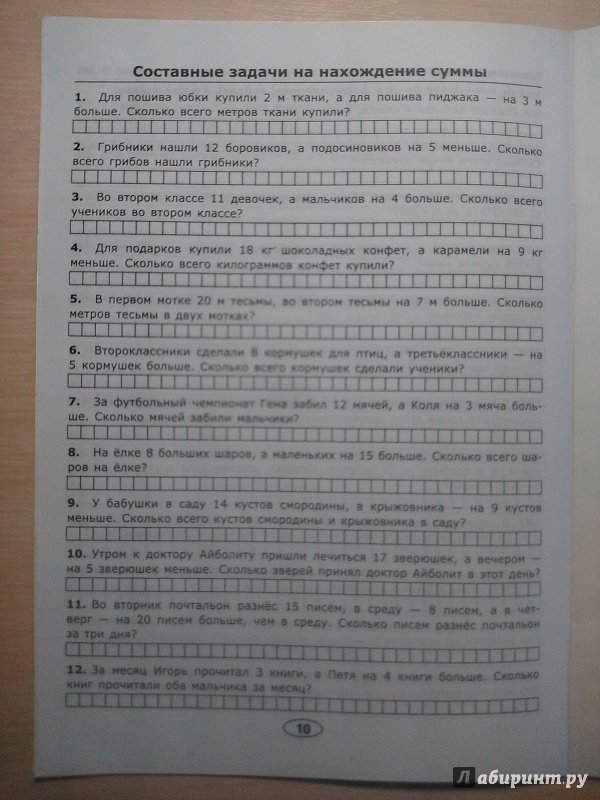 Составные задачи на нахождение суммы
1. Для пошива юбки купили 2 м ткани, а для пошива пиджака — на 3 м
больше. Сколько всего метров ткани купили?
2. Грибники нашли 12 боровиков, а подосиновиков на 5 меньше. Сколько
всего грибов нашли грибники?
3. Во втором классе 11 девочек, а мальчиков на 4 больше. Сколько всего
учеников во втором классе?
4. Для подарков купили 18 кг шоколадных конфет, а карамели на 9 кг
меньше. Сколько всего килограммов конфет купили?
5. В первом мотке 20 м тесьмы, во втором тесьмы на 7 м больше. Сколько
метров тесьмы в двух мотках?
6. Второклассники сделали 8 кормушек для птиц, а третьеклассники — на
5 кормушек больше. Сколько всего кормушек сделали ученики?
7. За футбольный чемпионат Гена забил 12 мячей, а Коля на 3 мяча боль-
ше. Сколько мячей забили мальчики?
8. На ёлке 8 больших шаров, а маленьких на 15 больше. Сколько всего ша-
ров на ёлке?
9. У бабушки в саду 14 кустов смородины, а крыжовника — на 9 кустов
меньше. Сколько всего кустов смородины и крыжовника в саду?
10. Утром к доктору Айболиту пришли лечиться 17 зверюшек, а вечером —
на 5 зверюшек меньше. Сколько зверей принял доктор Айболит в этот день?
11. Во вторник почтальон разнёс 15 писем, в среду — 8 писем, а в чет-
верг — на 20 писем больше, чем в среду. Сколько писем разнёс почтальон
за три дня?
12. За месяц Игорь прочитал 3 книги, а Петя на 4 книги больше. Сколько
книг прочитали оба мальчика за месяц?
10
Лабиринт.ру